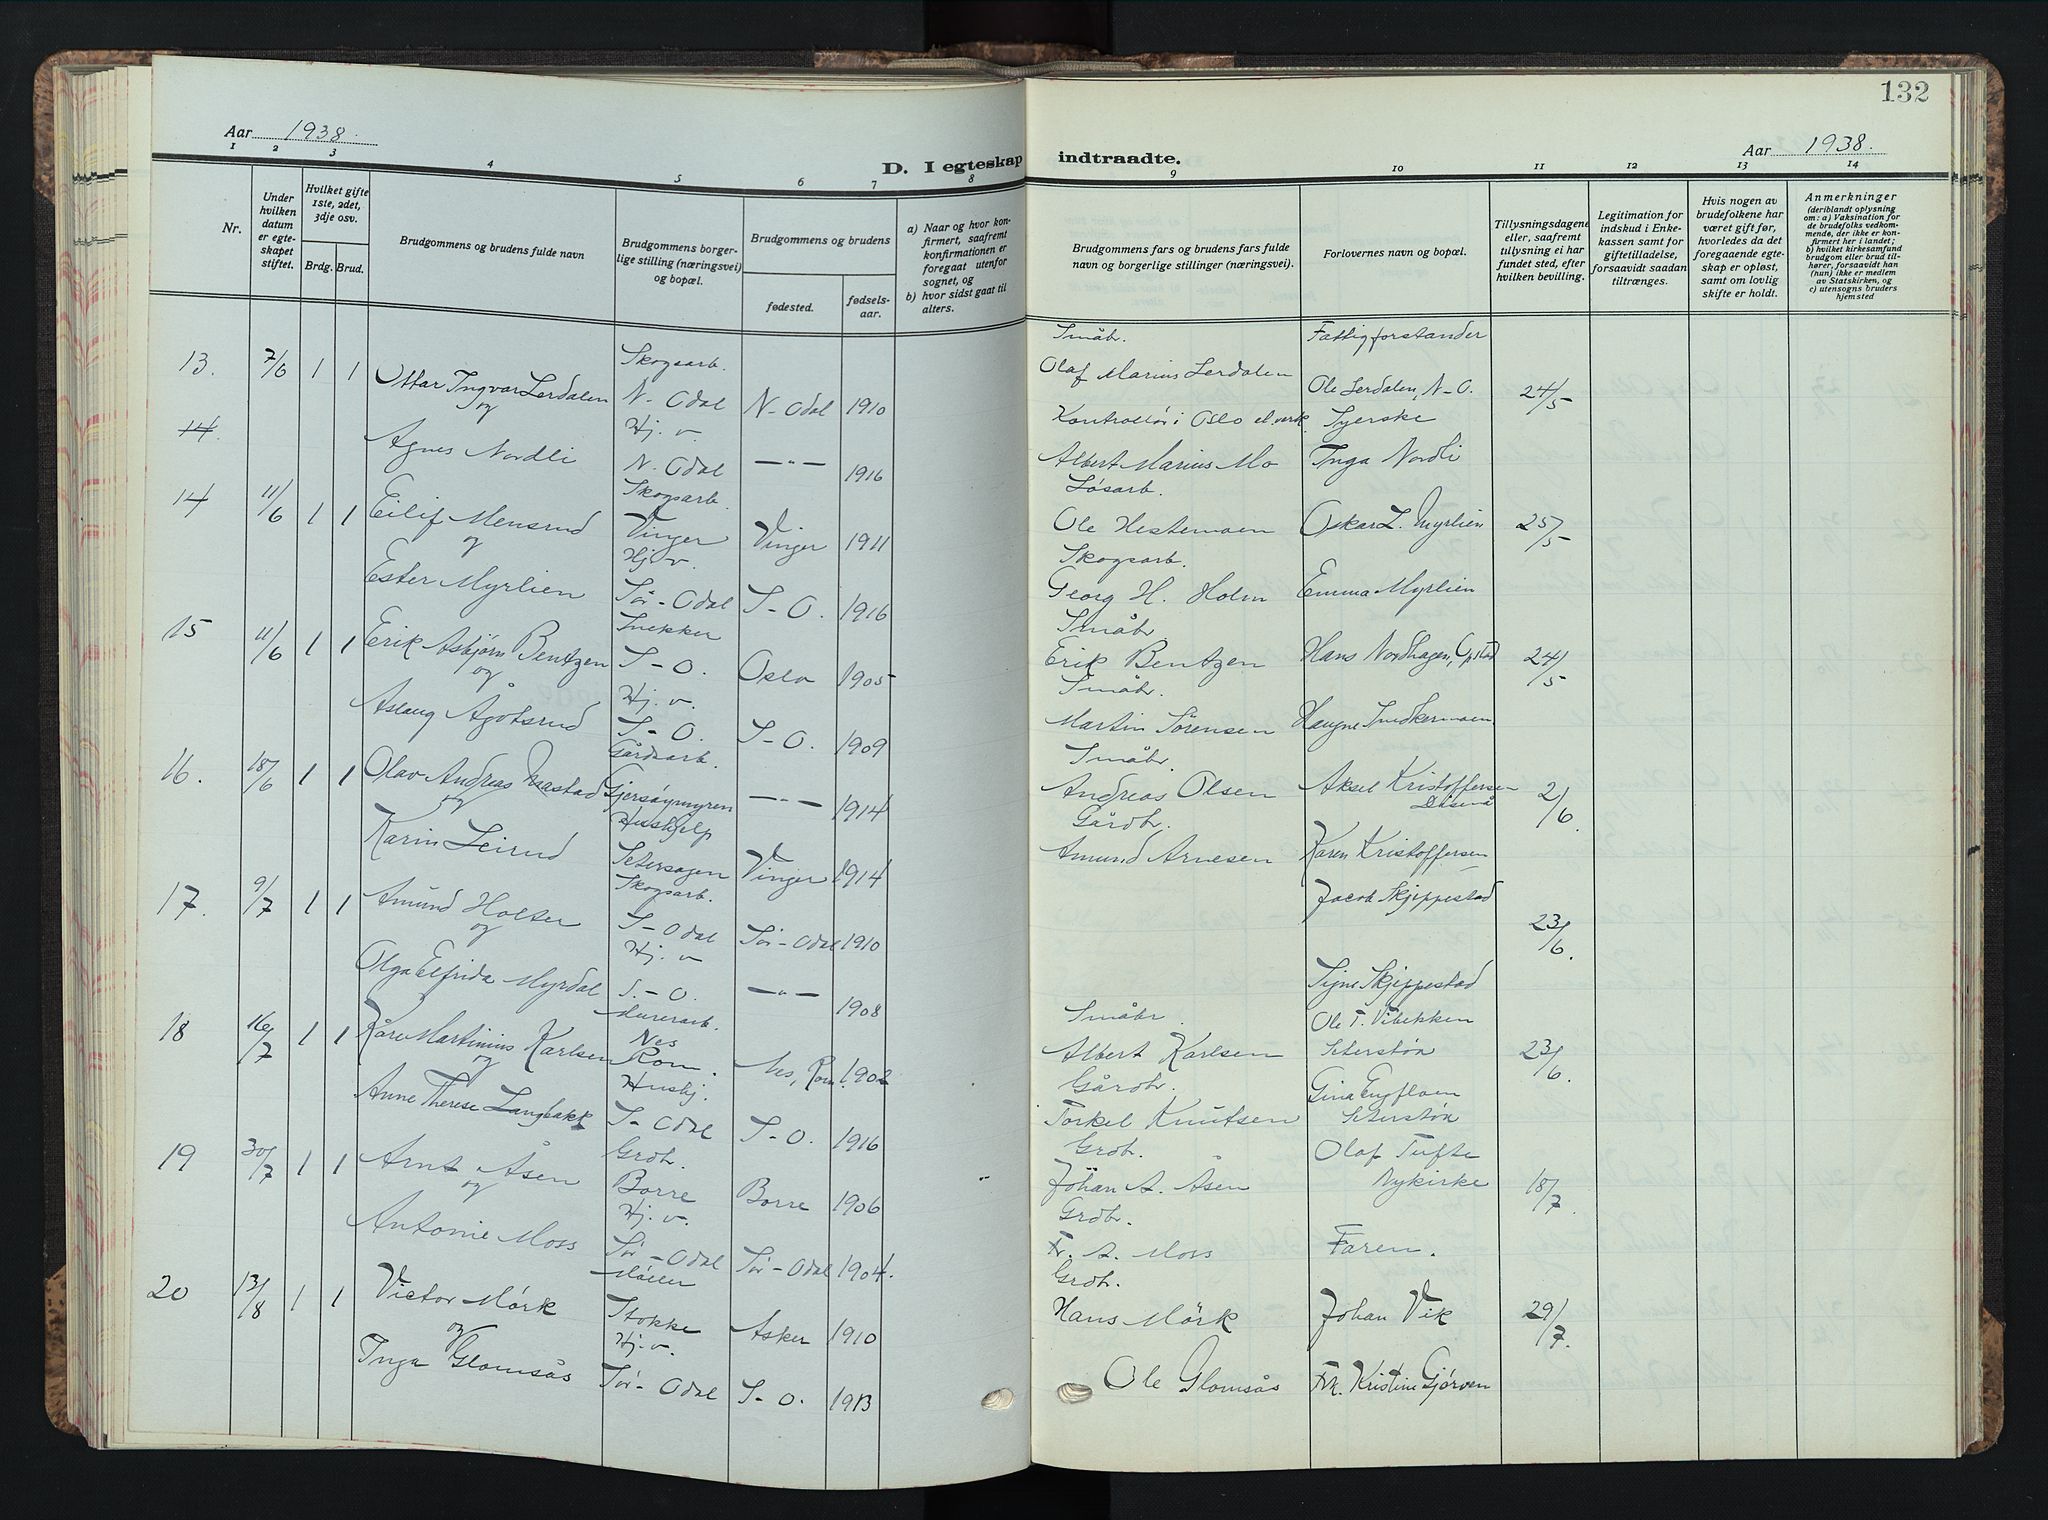 132
Aar 1938.
Aar 1938.
D. I egteskap indtraadte.
1 2 3 4 5 6 7 8 9 10 11 12 13 14
Nr.
Under hvilken datum er egteskapet stiftet.
Hvilket gifte 1ste, 2det, 3dje osv.
Brdg. Brud.
Brudgommens og brudens fulde navn
Brudgommens borgerlige stilling (næringsvei) og bopæl.
Brudgommens og brudens
fødested.
fødselsaar.
a) Naar og hvor konfirmert, saafremt konfirmationen er foregaat utenfor sognet, og
b) hvor sidst gaat til alters.
Brudgommens fars og brudens fars fulde navn og borgerlige stillinger (næringsvei).
Forlovernes navn og bopæl.
Tillysningsdagene eller, saafremt tillysning ei har fundet sted, efter hvilken bevilling.
Legitimation for indskud i Enkekassen samt for giftetilladelse, forsaavidt saadan tiltrænges.
Hvis nogen av brudefolkene har været gift før, hvorledes da det foregaaende egteskap er opløst, samt om lovlig skifte er holdt.
Anmerkninger
(deriblandt oplysning om: a) Vaksination for de brudefolks vedkommende, der ikke er konfirmert her i landet; b) hvilket kirkesamfund brudgom eller brud tilhører, forsaavidt han (hun) ikke er medlem av Statskirken, og c) utensogns bruders hjemsted
Skogsarb. Småbr. Fattigforstander
13. 7/6 1 1 Ottar Ingvar Lerdalen N-Odal N-Odal 1910 Olaf Marius Lerdalen Ole Lerdalen, N-O. 24/5
og
14. Hj. v. Kontrollør i Oslo el.verk Syerske
Agnes Nordli N. Odal —"— 1916 Albert Marius Mo Inga Nordli
Skogsarb. Løsarb.
14 11/6 1 1 Eilif Mensrud Vinger Vinger 1911 Ole Hestemoen Oskar L. Myrlien 25/5
og Hj. v. Skogsarb.
Ester Myrlien Sør-Odal S-O. 1916 Georg H. Holm Emma Myrlien
Snekker Småbr.
15 11/6 1 1 Erik Asbjørn Bentzen S-O. Oslo 1905 Erik Bentzen Hans Nordhagen, Opstad 24/5
og Hj. v. Småbr.
Aslaug Ågotsrud S-O. S-O. 1909 Martin Sørensen Haugne Snekkermoen
Gårdsarb. Småbr.
16. 18/6 1 1 Olav Andreas Mastad Gjersøymyren —"— 1914 Andreas Olsen Aksel Kristoffersen 2/6.
og Hushjelp Gårdbr.
Karin Leirud Setersagen Vinger 1914 Amund Arnesen Karen Kristoffersen
Skogsarb.
17. 9/7 1 1 Amund Holter S-Odal Sør-Odal 1910 Jacob Skjeppestad 23/6.
og Hj. v
Olga Elfrida Myrdal S.-O. —"— 1908 Signe Skjeppestad
Murerarb. Småbr. Ole T. Vibekken
18 16/7 1 1 Kåre Martinius Karlsen Nes Rom. Nes, Rom. 1902 Albert Karlsen Seterstøa 23/6.
og Hushj. Gårdbr.
Anne Therese Langbakk S-Odal S-O. 1916 Torkel Knutsen Gina Engfloen Seterstøa
Grdbr. Grdbr. Olaf Tufte
19 30/7 1 1 Arnt Åsen Borre Borre 1906 Johan A. Åsen Nykirke 18/7.
og Hj. v. Grdbr.
Antonie Moss Sør-Odal Sør-Odal 1904. Fr. A. Moss Faren.
Møller Grdbr.
20 13/8 1 1 Victor Mørk Stokke Asker 1910 Hans Mörk Johan Vik 29/7.
og Hj. v.
Inga Glomsås Sør-Odal S-O. 1913 Ole Glomsås Frk. Kristine Gjørven